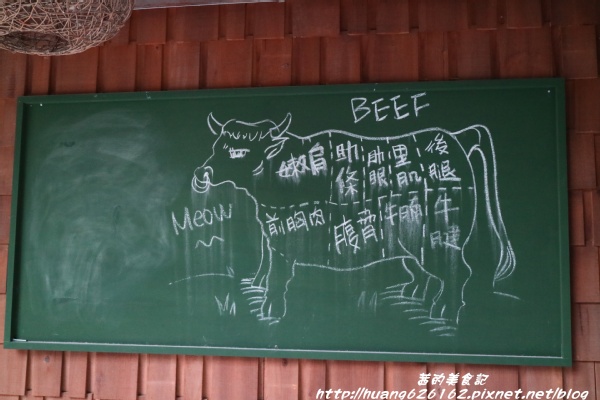 BEEF
嫩肩
助條
肋眼
里肌
後腿
Meow
前胸肉
腹脅
牛腩
牛腱
茜的美食記
http://huang626162.pixnet.net/blog